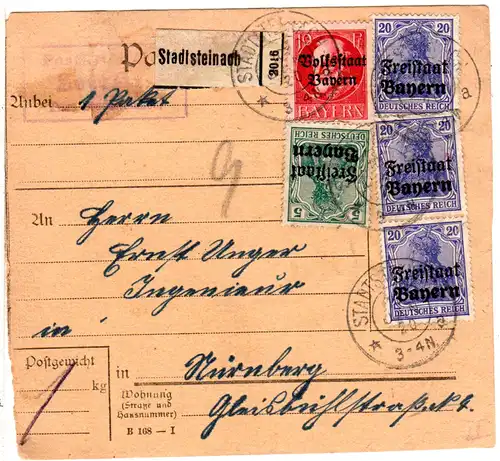 Pa
Stadtsteinach
9106
Anbei 1 Paket
10 Pf
Volksstaat
Bayern
BAYERN
20 20
Freistaat
Bayern
DEUTSCHES REICH
20 20
Freistaat
Bayern
DEUTSCHES REICH
20 20
Freistaat
Bayern
DEUTSCHES REICH
5 5
Freistaat
Bayern
DEUTSCHES REICH
STADTSTEINACH
a
STADTST
20
3-4N.
9
An Herrn
Ernst Unger
Ingenieur
in
Postgewicht
1 kg
in Nürnberg
Wohnung
(Straße und
Hausnummer)
Gleisbühlstraße
B 168 — I